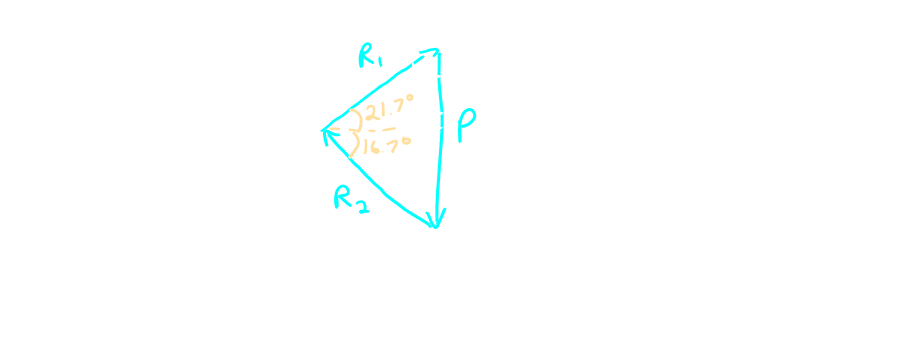 R₁
21.7°
P
16.7°
R₂